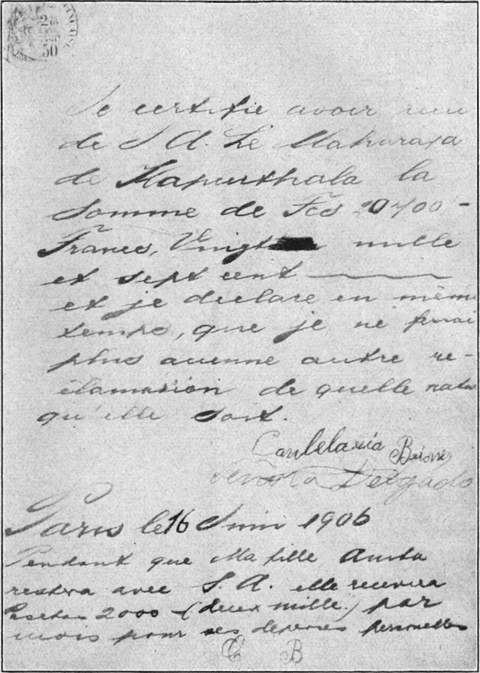 2
50
Je certifie avoir reçu
de S A. Le Maharaja
de Kapurthala la
Somme de Fcs 20700 -
Francs, Vingt mille
et sept cent
et je declare en même
temps, que je ne ferai
plus aucune autre re-
clamasión de quelle natu
qu'elle soit.
Candelaria Briones
Senora Delgado
Paris le 16 Juin 1906
Pendant que Ma fille Anita
restera avec S. A. elle recevra
Pesetas 2000 - (deux mille) par
mois pour ses depenses personelles
C B